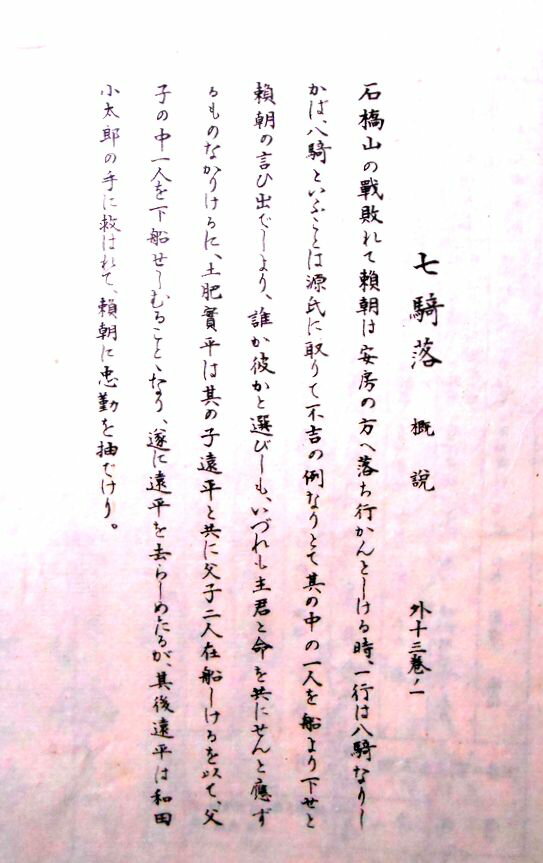 七騎落 概說 外十三巻ノ一
石橋山の戰敗れて賴朝は安房の方へ落ち行かんとしける時、一行は八騎なりし
かば、八騎といふことは源氏に取りて不吉の例なりとて其の中の一人を船より下せと
賴朝の言ひ出でしより、誰か彼かと選びしも、いづれも主君と命を共にせんと應ず
るものなかりけるに、土肥實平は其の子遠平と共に父子二人在船しけるを以て、父
子の中一人を下船せしむることゝなり、遂に遠平を去らしめたるが、其後遠平は和田
小太郎の手に救はれて、賴朝に忠勤を抽でけり。